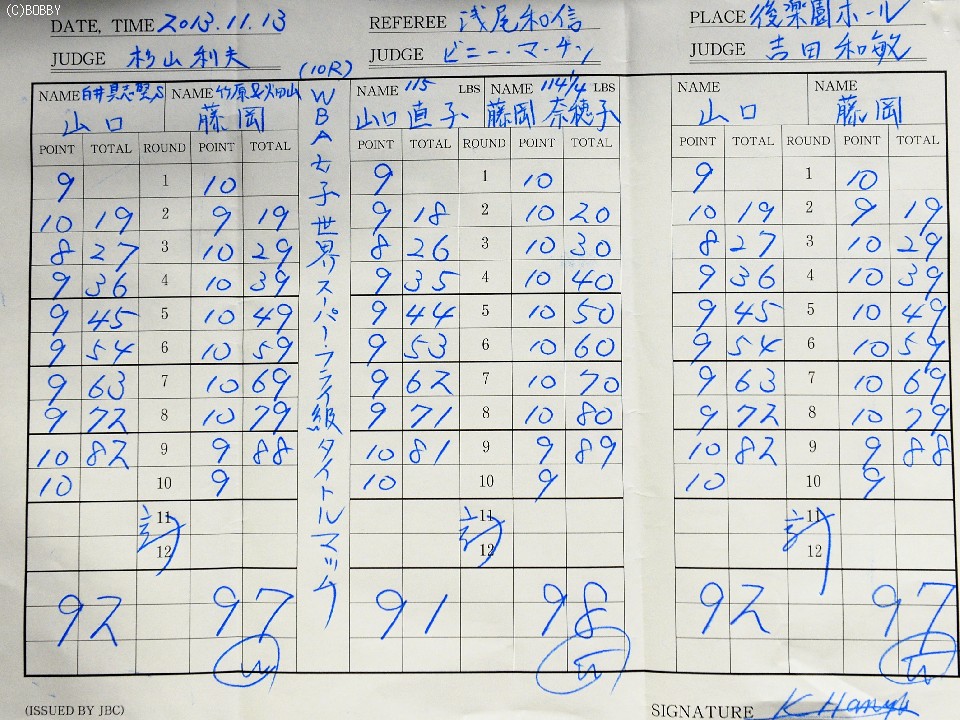 (C)BOBBY
DATE, TIME 2013.11.13 REFEREE 浅尾和信 PLACE 後楽園ホール
JUDGE 杉山利夫 (10R) JUDGE ビニー・マーチン JUDGE 吉田和敏
WBA女子世界スーパーフライ級タイトルマッチ
NAME 白井・具志堅S NAME 竹原&畑山 NAME 115 LBS NAME 114 1/4 LBS NAME NAME
山口 藤岡 山口直子 藤岡奈穂子 山口 藤岡
POINT TOTAL ROUND POINT TOTAL POINT TOTAL ROUND POINT TOTAL POINT TOTAL ROUND POINT TOTAL
9 1 10 9 1 10 9 1 10
10 19 2 9 19 9 18 2 10 20 10 19 2 9 19
8 27 3 10 29 8 26 3 10 30 8 27 3 10 29
9 36 4 10 39 9 35 4 10 40 9 36 4 10 39
9 45 5 10 49 9 44 5 10 50 9 45 5 10 49
9 54 6 10 59 9 53 6 10 60 9 54 6 10 59
9 63 7 10 69 9 62 7 10 70 9 63 7 10 69
9 72 8 10 79 9 71 8 10 80 9 72 8 10 79
10 82 9 9 88 10 81 9 9 89 10 82 9 9 88
10 10 9 10 10 9 10 10 9
11 11 11
計 計 計
12 12 12
92 97 91 98 92 97
(ISSUED BY JBC) SIGNATURE